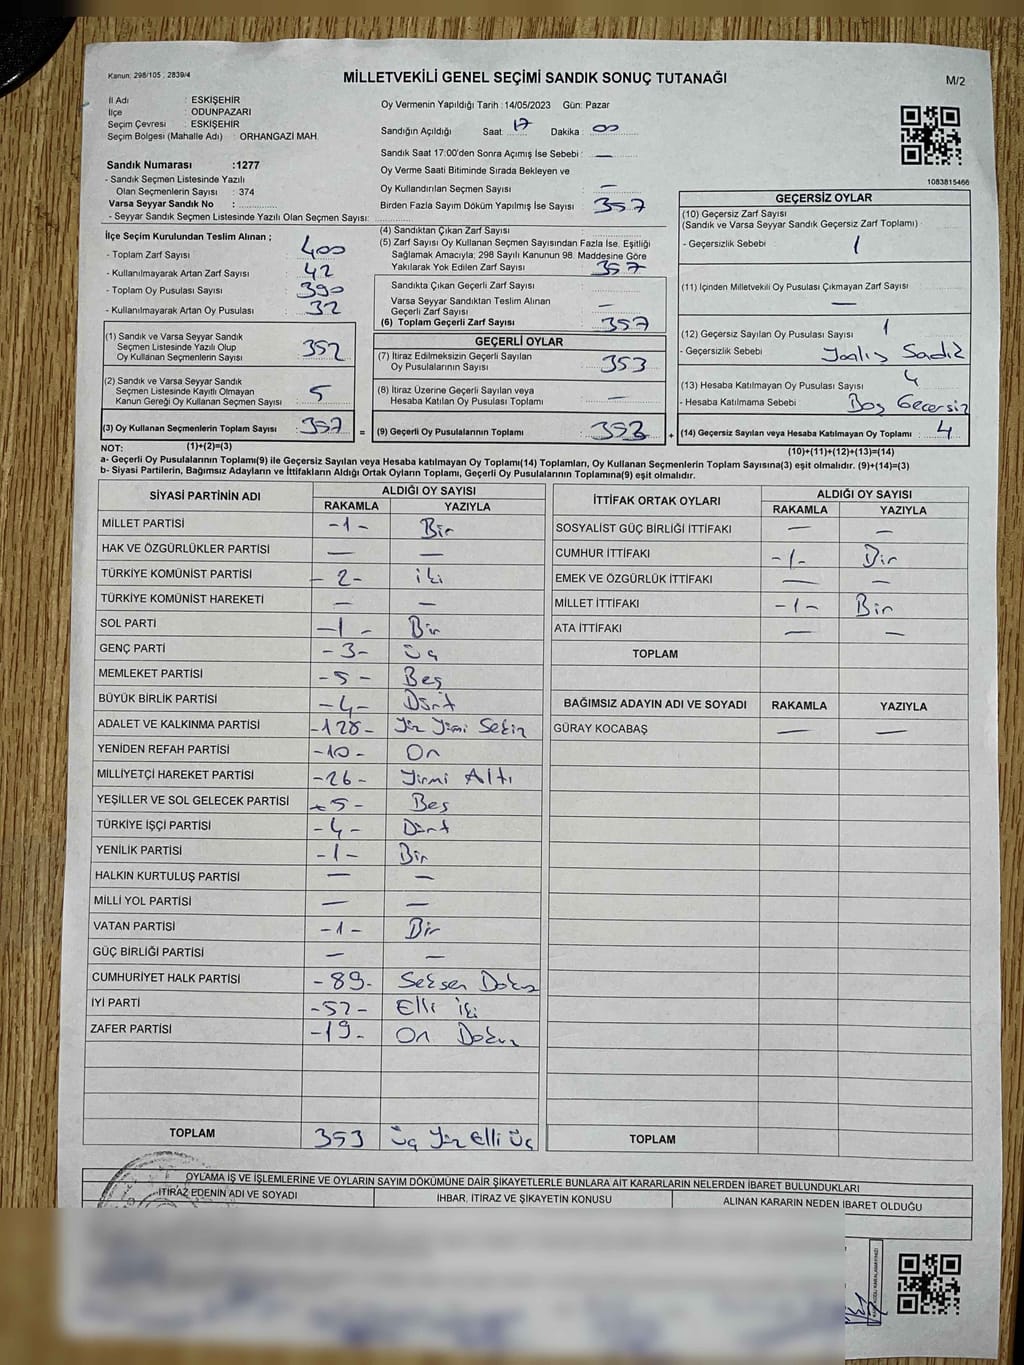 Kanun: 298/105 , 2839/4
MİLLETVEKİLİ GENEL SEÇİMİ SANDIK SONUÇ TUTANAĞI
M/2
İl Adı : ESKİŞEHİR
İlçe : ODUNPAZARI
Seçim Çevresi : ESKİŞEHİR
Seçim Bölgesi (Mahalle Adı) : ORHANGAZİ MAH.
Sandık Numarası :1277
- Sandık Seçmen Listesinde Yazılı
Olan Seçmenlerin Sayısı : 374
Varsa Seyyar Sandık No :
- Seyyar Sandık Seçmen Listesinde Yazılı Olan Seçmen Sayısı:
Oy Vermenin Yapıldığı Tarih : 14/05/2023 Gün: Pazar
Sandığın Açıldığı Saat 17 Dakika 00
Sandık Saat 17:00'den Sonra Açımış İse Sebebi : —
Oy Verme Saati Bitiminde Sırada Bekleyen ve
Oy Kullandırılan Seçmen Sayısı : —
Birden Fazla Sayım Döküm Yapılmış İse Sayısı : 357
1083815466
İlçe Seçim Kurulundan Teslim Alınan ;
- Toplam Zarf Sayısı : 400
- Kullanılmayarak Artan Zarf Sayısı : 42
- Toplam Oy Pusulası Sayısı : 390
- Kullanılmayarak Artan Oy Pusulası : 32
(1) Sandık ve Varsa Seyyar Sandık
Seçmen Listesinde Yazılı Olup
Oy Kullanan Seçmenlerin Sayısı : 352
(2) Sandık ve Varsa Seyyar Sandık
Seçmen Listesinde Kayıtlı Olmayan
Kanun Gereği Oy Kullanan Seçmen Sayısı : 5
(3) Oy Kullanan Seçmenlerin Toplam Sayısı : 357
(1)+(2)=(3)
(4) Sandıktan Çıkan Zarf Sayısı :
(5) Zarf Sayısı Oy Kullanan Seçmen Sayısından Fazla İse, Eşitliği
Sağlamak Amacıyla; 298 Sayılı Kanunun 98. Maddesine Göre
Yakılarak Yok Edilen Zarf Sayısı : 357
Sandıkta Çıkan Geçerli Zarf Sayısı :
Varsa Seyyar Sandıktan Teslim Alınan
Geçerli Zarf Sayısı : —
(6) Toplam Geçerli Zarf Sayısı : 357
GEÇERLİ OYLAR
(7) İtiraz Edilmeksizin Geçerli Sayılan
Oy Pusulalarının Sayısı : 353
(8) İtiraz Üzerine Geçerli Sayılan veya
Hesaba Katılan Oy Pusulası Toplamı : —
= (9) Geçerli Oy Pusulalarının Toplamı : 353 +
GEÇERSİZ OYLAR
(10) Geçersiz Zarf Sayısı
(Sandık ve Varsa Seyyar Sandık Geçersiz Zarf Toplamı) :
- Geçersizlik Sebebi : 1
(11) İçinden Milletvekili Oy Pusulası Çıkmayan Zarf Sayısı :
—
(12) Geçersiz Sayılan Oy Pusulası Sayısı : 1
- Geçersizlik Sebebi : Sandık
(13) Hesaba Katılmayan Oy Pusulası Sayısı : 4
- Hesaba Katılmama Sebebi : Boş Geçersiz
(14) Geçersiz Sayılan veya Hesaba Katılmayan Oy Toplamı : 4
(10)+(11)+(12)+(13)=(14)
NOT:
a- Geçerli Oy Pusulalarının Toplamı(9) ile Geçersiz Sayılan veya Hesaba katılmayan Oy Toplamı(14) Toplamları, Oy Kullanan Seçmenlerin Toplam Sayısına(3) eşit olmalıdır. (9)+(14)=(3)
b- Siyasi Partilerin, Bağımsız Adayların ve İttifakların Aldığı Ortak Oyların Toplamı, Geçerli Oy Pusulalarının Toplamına(9) eşit olmalıdır.
SİYASİ PARTİNİN ADI ALDIĞI OY SAYISI
RAKAMLA YAZIYLA
MİLLET PARTİSİ -1- Bir
HAK VE ÖZGÜRLÜKLER PARTİSİ — —
TÜRKİYE KOMÜNİST PARTİSİ -2- iki
TÜRKİYE KOMÜNİST HAREKETİ — —
SOL PARTİ -1- Bir
GENÇ PARTİ -3- üç
MEMLEKET PARTİSİ -5- Beş
BÜYÜK BİRLİK PARTİSİ -4- Dört
ADALET VE KALKINMA PARTİSİ -128- Yüz Yirmi Sekiz
YENİDEN REFAH PARTİSİ -10- On
MİLLİYETÇİ HAREKET PARTİSİ -26- Yirmi Altı
YEŞİLLER VE SOL GELECEK PARTİSİ -5- Beş
TÜRKİYE İŞÇİ PARTİSİ -4- Dört
YENİLİK PARTİSİ -1- Bir
HALKIN KURTULUŞ PARTİSİ — —
MİLLİ YOL PARTİSİ — —
VATAN PARTİSİ -1- Bir
GÜÇ BİRLİĞİ PARTİSİ — —
CUMHURİYET HALK PARTİSİ -89- Seksen Dokuz
İYİ PARTİ -52- Elli iki
ZAFER PARTİSİ -19- On Dokuz
TOPLAM 353 üç Yüz Elli üç
İTTİFAK ORTAK OYLARI ALDIĞI OY SAYISI
RAKAMLA YAZIYLA
SOSYALİST GÜÇ BİRLİĞİ İTTİFAKI — —
CUMHUR İTTİFAKI -1- Bir
EMEK VE ÖZGÜRLÜK İTTİFAKI — —
MİLLET İTTİFAKI -1- Bir
ATA İTTİFAKI — —
TOPLAM
BAĞIMSIZ ADAYIN ADI VE SOYADI RAKAMLA YAZIYLA
GÜRAY KOCABAŞ — —
TOPLAM
OYLAMA İŞ VE İŞLEMLERİNE VE OYLARIN SAYIM DÖKÜMÜNE DAİR ŞİKAYETLERLE BUNLARA AİT KARARLARIN NELERDEN İBARET BULUNDUKLARI
İTİRAZ EDENİN ADI VE SOYADI İHBAR, İTİRAZ VE ŞİKAYETİN KONUSU ALINAN KARARIN NEDEN İBARET OLDUĞU